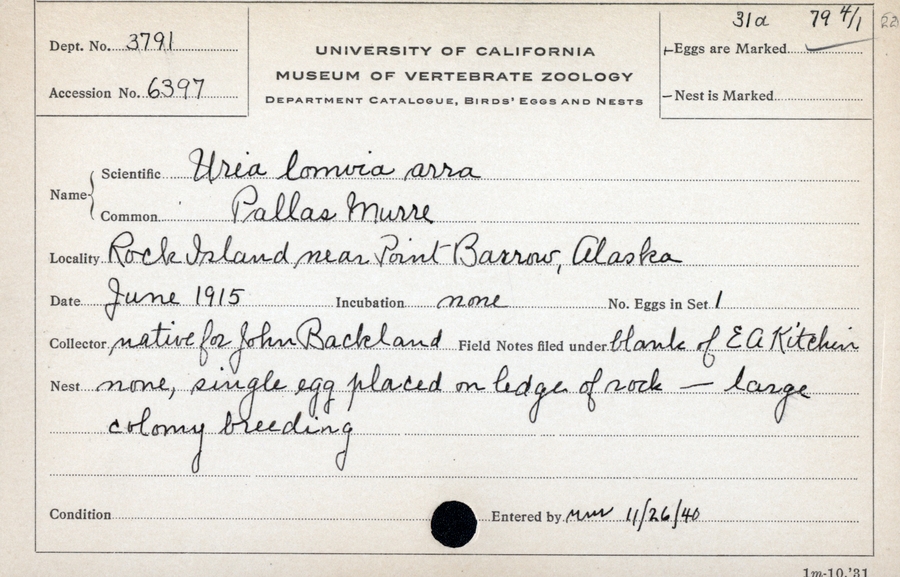 31a 79 4/1 22
Dept. No. 3791
UNIVERSITY OF CALIFORNIA
Eggs are Marked
MUSEUM OF VERTEBRATE ZOOLOGY
Accession No. 6397
Nest is Marked
DEPARTMENT CATALOGUE, BIRDS' EGGS AND NESTS
Name
Scientific Uria lomvia arra
Common Pallas Murre
Locality Rock Island near Point Barrow, Alaska
Date June 1915 Incubation none No. Eggs in Set 1
Collector native for John Backland Field Notes filed under blank of E A Kitchin
Nest none, single egg placed on ledge of rock — large
colony breeding
Condition Entered by 11/26/40
1m-10,'31